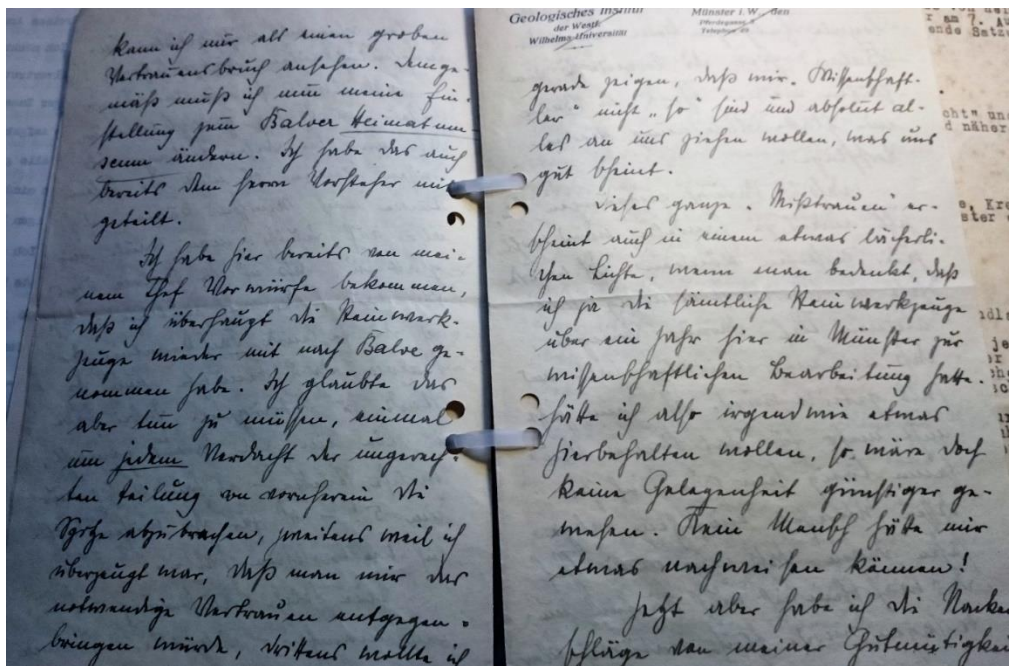 kann ich nur als einen groben
Vertrauensbruch ansehen. Demge-
mäß muß ich nun meine Ein-
stellung zum Balver Heimatmu-
seum ändern. Ich habe das auch
bereits dem Herrn Vorsteher mit-
geteilt.
Ich habe hier bereits von mei-
nem Chef Vorwürfe bekommen,
daß ich überhaupt die Steinwerk-
zeuge wieder mit nach Balve ge-
nommen habe. Ich glaubte das
aber tun zu müssen, einmal
um jedem Verdacht der ungerech-
ten Teilung von vornherein die
Spitze abzubrechen, zweitens weil ich
überzeugt war, daß man mir das
notwendige Vertrauen entgegen-
bringen würde, drittens wollte ich
Geologisches Institut
der Westf.
Wilhelms-Universität
Münster i. W., den
Pferdegasse
Telephon
gerade zeigen, daß wir „Wissenschaft-
ler" nicht „so" sind und absolut al-
les an uns ziehen wollen, was uns
gut scheint.
Dieses ganze „Mißtrauen" er-
scheint auch in einem etwas lächerli-
chen Lichte, wenn man bedenkt, daß
ich ja die sämtliche Steinwerkzeuge
über ein Jahr hier in Münster zur
wissenschaftlichen Bearbeitung hatte.
Hätte ich also irgendwie etwas
hierbehalten wollen, so wäre doch
keine Gelegenheit günstiger ge-
wesen. Kein Mensch hätte mir
etwas nachweisen können!
Jetzt aber habe ich die Nacken
schläge von meiner Gutmütigkei